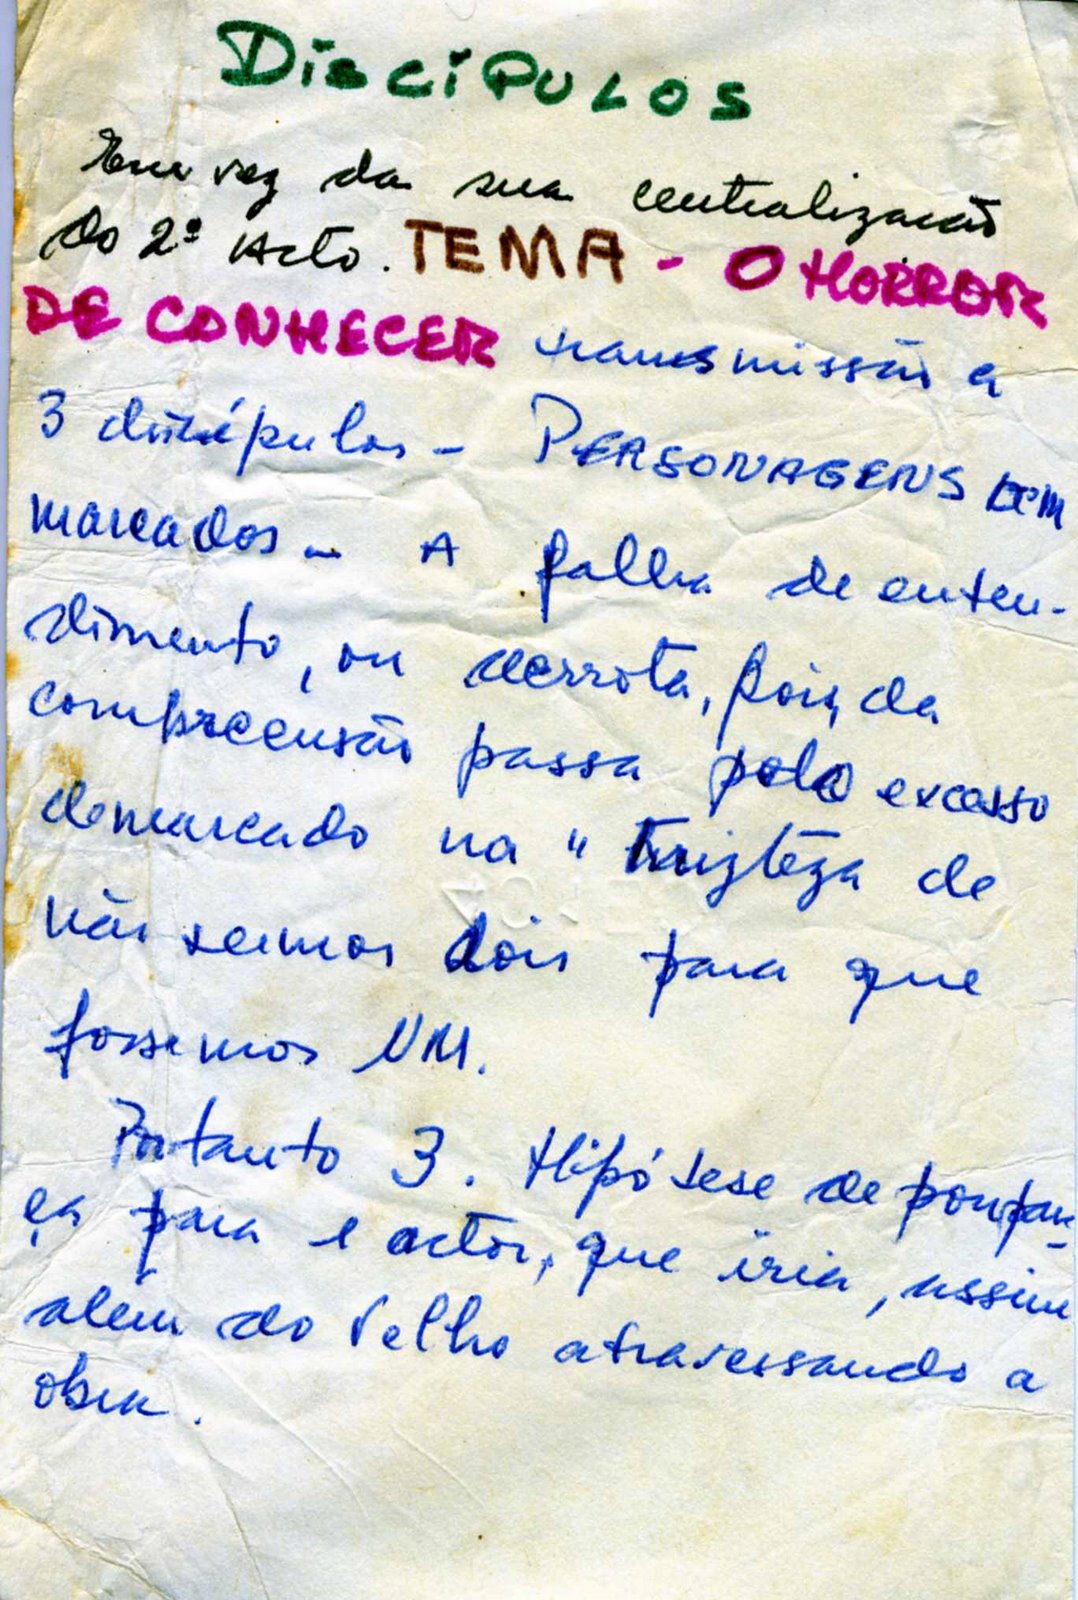 DISCÍPULOS
Em vez da sua centralização
do 2º Acto. TEMA - O HORROR
DE CONHECER transmissão a
3 discípulos - PERSONAGENS bem
marcados - A falha de enten-
dimento, ou derrota, pois, da
compreensão passa pelo excesso
demarcado na " Tristeza de
nós sermos dois para que
fossemos UM.
Portanto 3. Hipótese de poupan-
ça para 1 actor, que iria, assim
além do Velho atravessando a
obra.